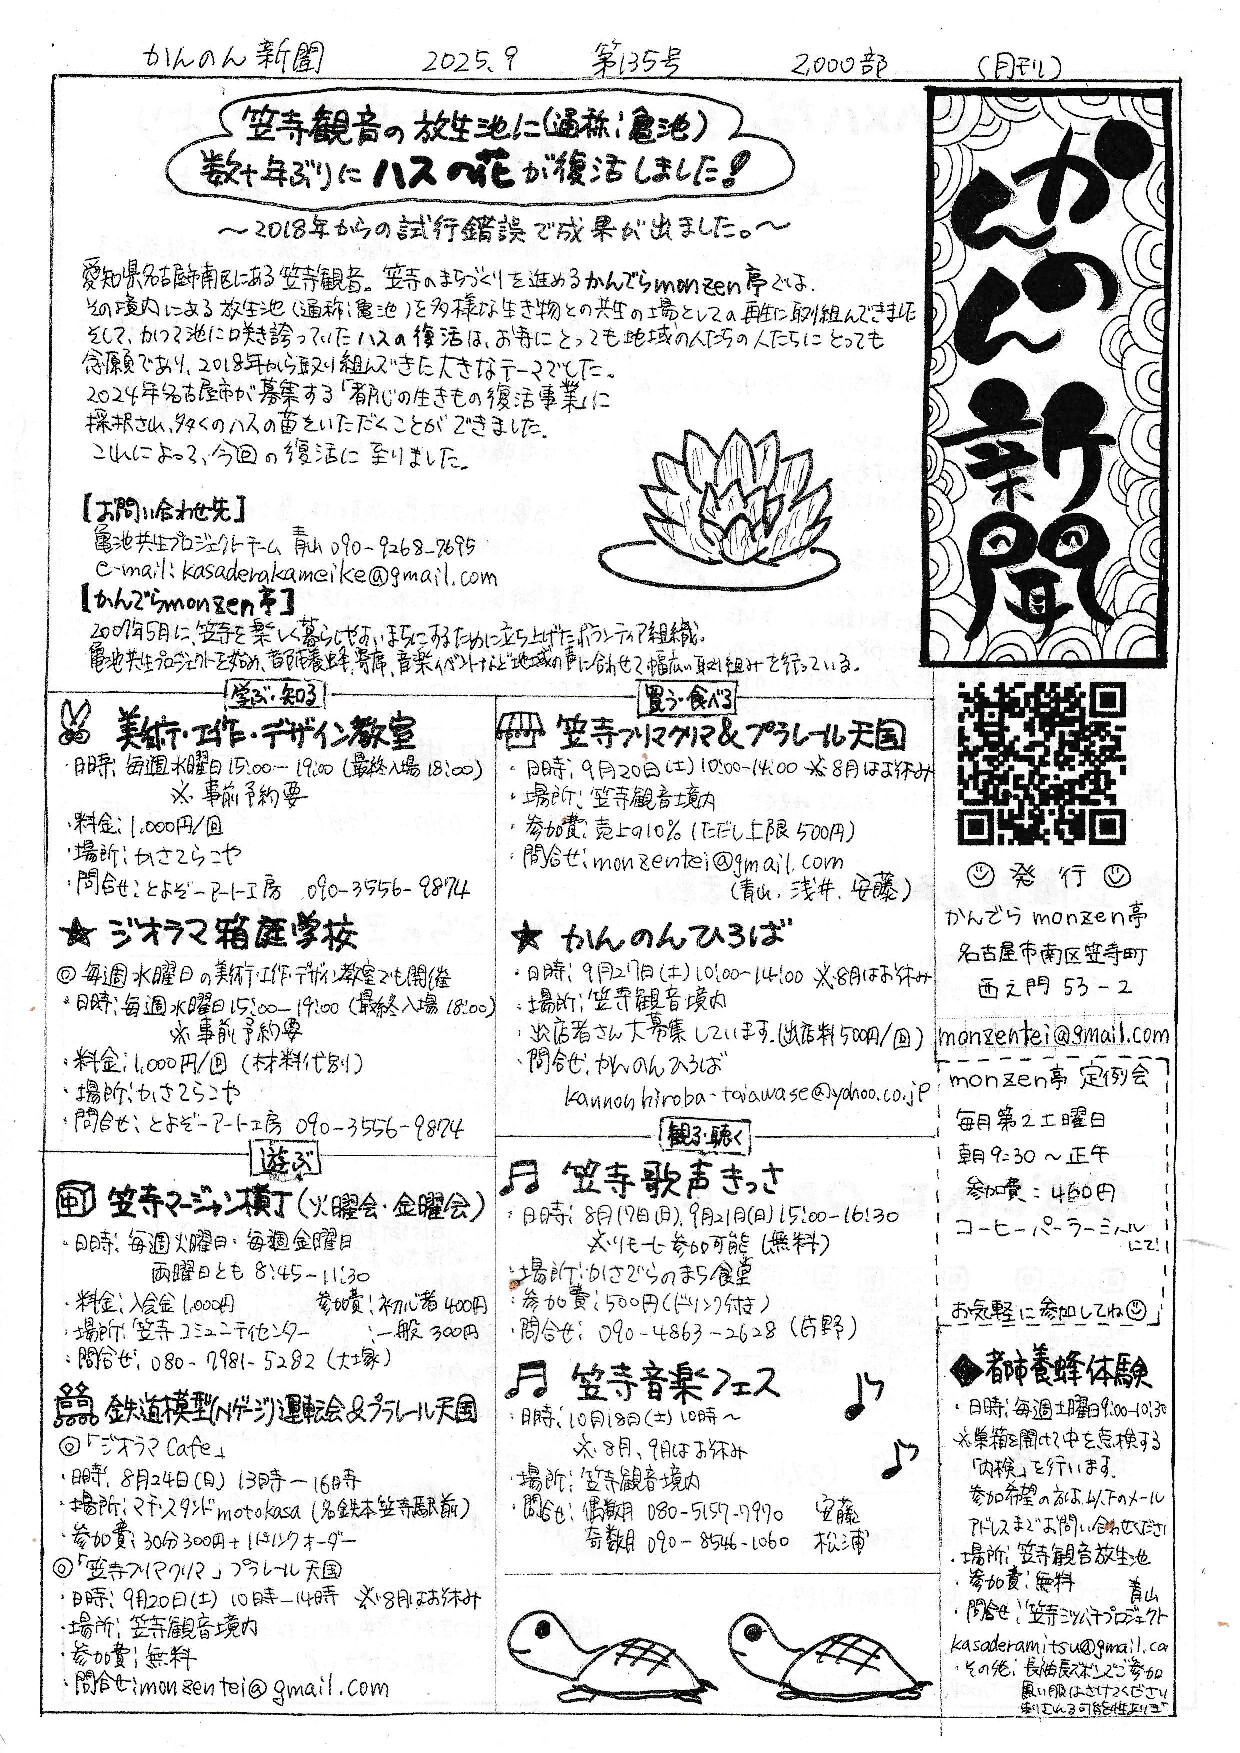 かんのん新聞 2025.9 第135号 2,000部 (月刊)
笠寺観音の放生池に(通称:亀池)
数十年ぶりにハスの花が復活しました!
～2018年からの試行錯誤で成果が出ました。～
愛知県名古屋市南区にある笠寺観音。笠寺のまちづくりを進めるかんでらmonzen亭では、
その境内にある放生池(通称:亀池)を多様な生き物との共生の場としての再生に取り組んできました
そして、かつて池に咲き誇っていたハスの復活は、お寺にとっても地域の人たちの人たちにとっても
念願であり、2018年から取り組んできた大きなテーマでした。
2024年名古屋市が募集する「都心の生きもの復活事業」に
採択され、多くのハスの苗をいただくことができました。
これによって、今回の復活に至りました。
【お問い合わせ先】
亀池共生プロジェクトチーム 青山 090-9268-7695
e-mail:kasaderakameike@gmail.com
【かんでらmonzen亭】
2007年5月に、笠寺を楽しく暮らしやすいまちにするために立ち上げたボランティア組織。
亀池共生プロジェクトを始め、都市養蜂、寄席、音楽イベントなど地域の声に合わせて幅広い取り組みを行っている。
かんのん新聞
学ぶ・知る
美術・工作・デザイン教室
・日時:毎週水曜日15:00-19:00(最終入場18:00)
※事前予約要
・料金:1,000円/回
・場所:かさてらこや
・問合せ:とよぞーアート工房 090-3556-9874
★ジオラマ箱庭学校
◎毎週水曜日の美術・工作・デザイン教室でも開催
・日時:毎週水曜日15:00-19:00(最終入場18:00)
※事前予約要
・料金:1,000円/回(材料代別)
・場所:かさてらこや
・問合せ:とよぞーアート工房 090-3556-9874
遊ぶ
笠寺マージャン横丁(火曜会・金曜会)
・日時:毎週火曜日・毎週金曜日
両曜日とも8:45-11:30
・料金:入会金1,000円 参加費:初心者400円
・場所:笠寺コミュニティセンター :一般300円
・問合せ:080-7981-5282(大塚)
鉄道模型(Nゲージ)運転会&プラレール天国
◎「ジオラマCafe」
・日時:8月24日(日)13時-16時
・場所:マチ・スタンドmotokasa(名鉄本笠寺駅前)
・参加費:30分300円+1ドリンクオーダー
◎「笠寺フリマクリマ」プラレール天国
・日時:9月20日(土)10時-14時 ※8月はお休み
・場所:笠寺観音境内
・参加費:無料
・問合せ:monzentei@gmail.com
買う・食べる
笠寺フリマクリマ&プラレール天国
・日時:9月20日(土)10:00-14:00 ※8月はお休み
・場所:笠寺観音境内
・参加費:売上の10%(ただし上限500円)
・問合せ:monzentei@gmail.com
(青山、浅井、安藤)
★かんのんひろば
・日時:9月27日(土)10:00-14:00 ※8月はお休み
・場所:笠寺観音境内
・出店者さん大募集しています。(出店料500円/回)
・問合せ:かんのんひろば
kannonhiroba-taiawase@yahoo.co.jp
観る・聴く
笠寺歌声きっさ
・日時:8月17日(日)、9月21日(日)15:00-16:30
※リモート参加可能(無料)
・場所:かさでらのまち食堂
・参加費:500円(ドリンク付き)
・問合せ:090-4863-2628(皆野)
笠寺音楽フェス
・日時:10月18日(土)10時～
※8月、9月はお休み
・場所:笠寺観音境内
・問合せ:偶数月 080-5157-7970 安藤
奇数月 090-8546-1060 松浦
発行
かんでらmonzen亭
名古屋市南区笠寺町
西之門53-2
monzentei@gmail.com
monzen亭 定例会
毎月第2土曜日
朝9:30～正午
参加費:460円
コーヒーパーラーミールにて!
お気軽に参加してね
都市養蜂体験
・日時:毎週土曜日9:00-10:30
※巣箱を開けて中を点検する
「内検」を行います。
参加希望の方は、以下のメール
アドレスまでお問い合わせください
・場所:笠寺観音放生池
・参加費:無料
青山
・問合せ:笠寺ミツバチプロジェクト
kasaderamitsu@gmail.ca
・その他:長袖長ズボンでご参加
黒い服はさけてください
刺される可能性あります